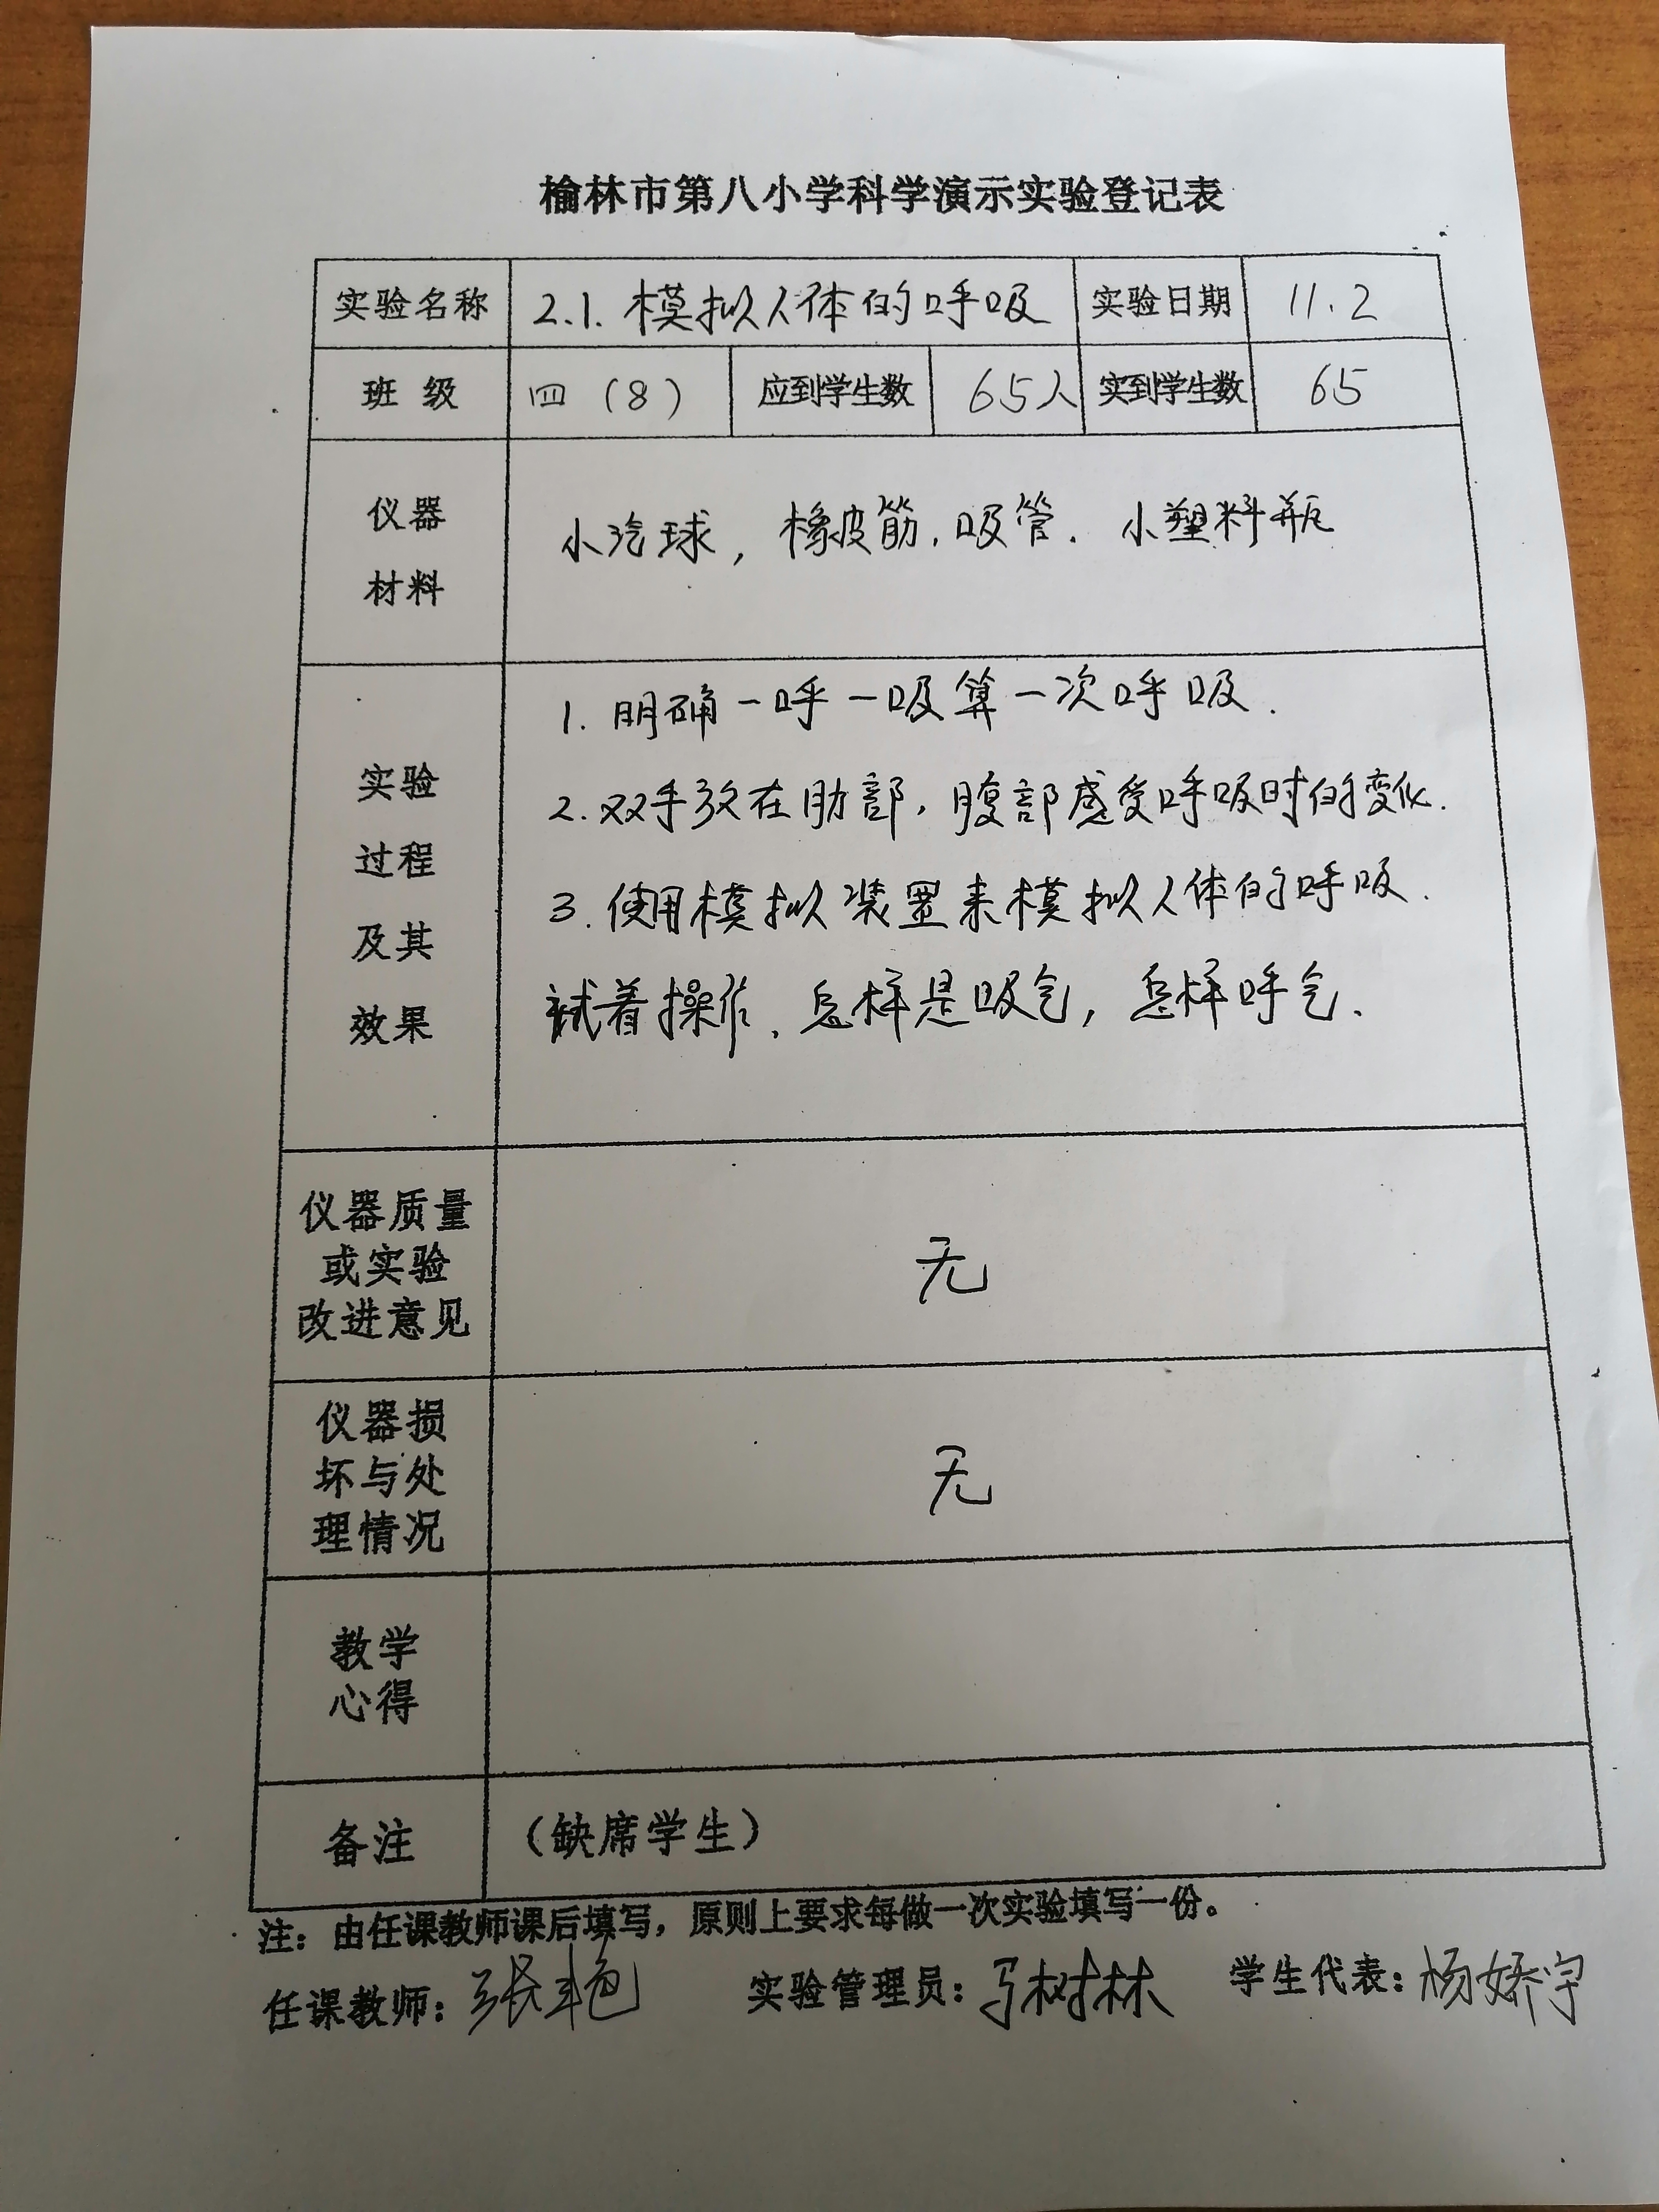 榆林市第八小学科学演示实验登记表
实验名称 2.1.模拟人体的呼吸 实验日期 11.2
班 级 四(8) 应到学生数 65人 实到学生数 65
仪器
材料
小汽球,橡皮筋,吸管.小塑料瓶
实验
过程
及其
效果
1.明确一呼一吸算一次呼吸.
2.双手放在肋部,腹部感受呼吸时的变化.
3.使用模拟装置来模拟人体的呼吸.
试着操作、怎样是吸气,怎样呼气.
仪器质量
或实验
改进意见
无
仪器损
坏与处
理情况
无
教学
心得
备注 (缺席学生)
注:由任课教师课后填写,原则上要求每做一次实验填写一份。
任课教师:张艳 实验管理员:马树林 学生代表:杨娇宇